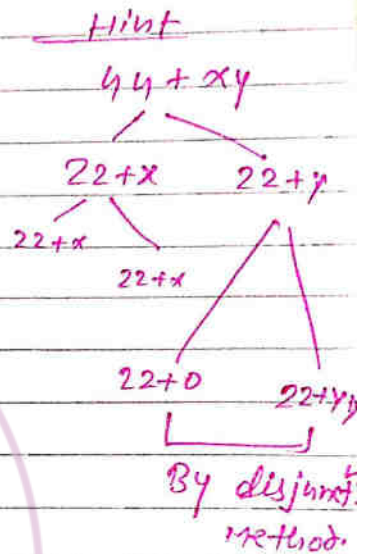 Hint
44 + xy
22+x 22+y
22+x
22+x
22+0 22+yy
By disjunct.
method.